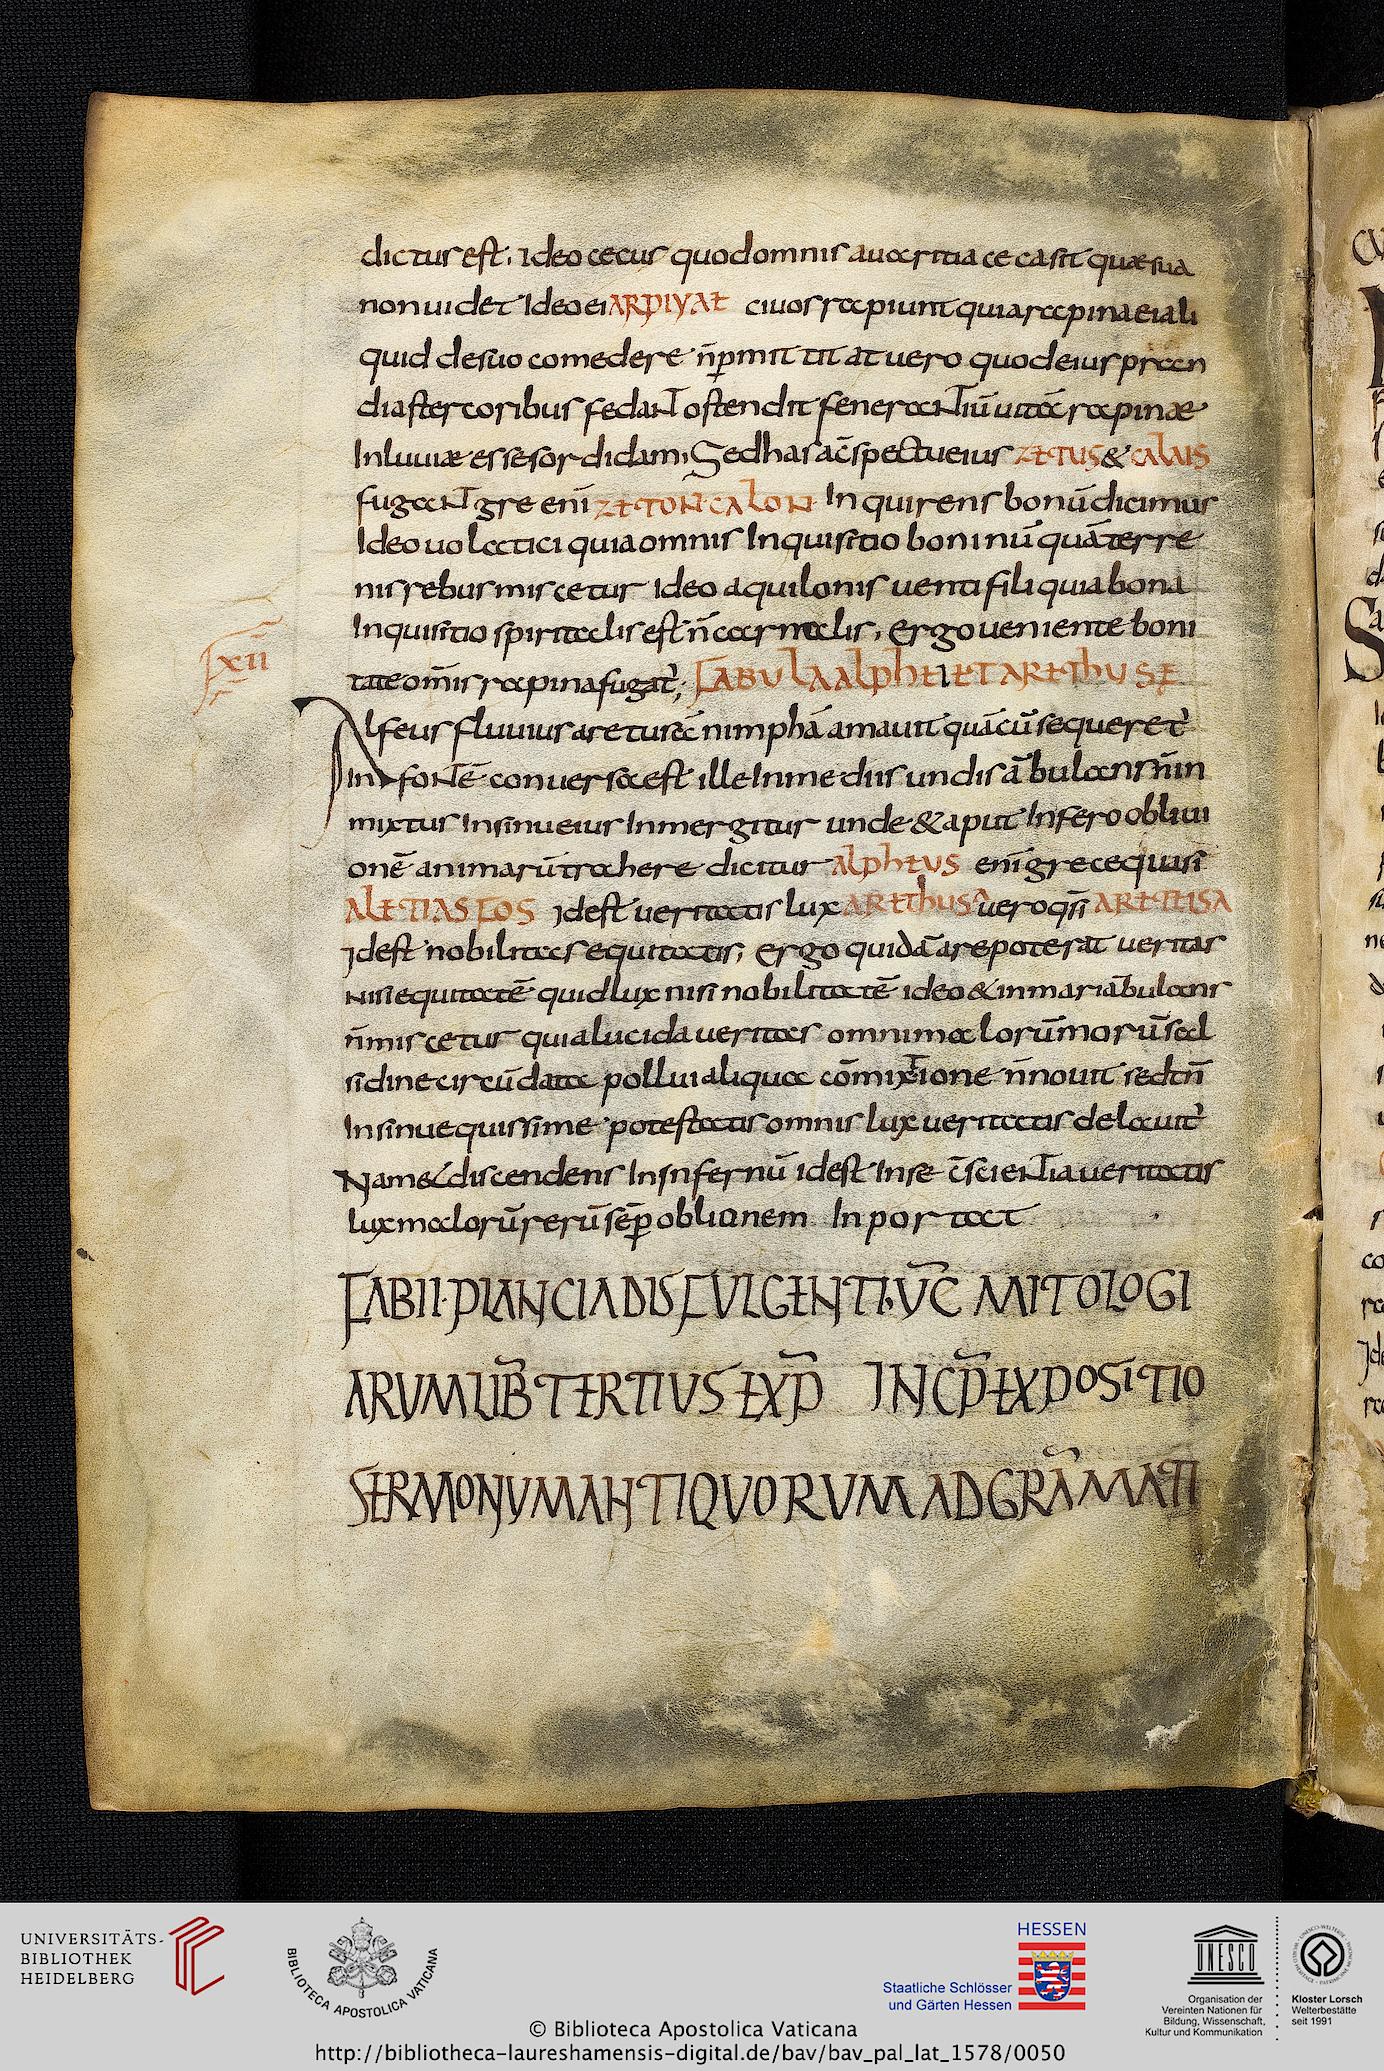 dictur est. Ideo cecus quod omnis auaritia ceca sit quæ sua
non uidet Ideo ei ARPIYAE ciuos rapiunt quia rapina ei ali
quid de suo comedere n̄ p̱mittit at uero quod eius pran
dia stercoribus fedaNT ostendit feneraNTiū uitā rapinæ
Inluuiæ esse sordidam; Sed has ac̄spectu eius ZETUS & CALAIS
fugaNT gre eni ZETON CALON Inquirens bonū dicimus
Ideo uolatici quia omnis Inquisitio boni nūquā terre
nis rebus miscetur Ideo aquilonis uenti fili quia bona
Inquisitio spiritalis est n̄ carnalis, Ergo ueniente boni
tate om̄is rapina fugat̄;
FABULA ALPHEI ET ARETHUSE
XII
Alfeus fluuius aretusā nimphā amauit quā cū sequeret̄
In foNTē conuersa est ille In mediis undis ābulans n̄ in
mixtus In sinu eius Inmergitur unde & aput Infero obliui
onē animarū trahere dicitur ALPHEUS eni grece quasi
ALETIAS FOS Idest ueritatis lux ARETHUSA uero qsī ARETEISA
Idest nobilitas equitatis, Ergo quid āare poterat ueritas
nisi equitatē quid lux nisi nobilitatē ideo & in mari ābulans
n̄ miscetur quia lucida ueritas omni malorū morū sal
sidine circūdata pollui aliqua cōmixTione n̄ nouit sed tn̄
In sinu equissime potestatis omnis lux ueritatis delauit̄
Nam & discendens In infernū idest In se c̄scieNTia ueritatis
lux malorū rerū sēp̱ oblianem In portat
FABII PLANCIADIS FULGENTI V̄C MITOLOGI
ARUM LIB̄ TERTIUS EXP̄ INCP̄ EXPOSITIO
SERMONUM ANTIQUORUM AD GRĀMATI
UNIVERSITÄTS-
BIBLIOTHEK
HEIDELBERG
BIBLIOTECA APOSTOLICA VATICANA
HESSEN
Staatliche Schlösser
und Gärten Hessen
UNESCO
Organisation der
Vereinten Nationen für
Bildung, Wissenschaft,
Kultur und Kommunikation
Kloster Lorsch
Welterbestätte
seit 1991
© Biblioteca Apostolica Vaticana
http://bibliotheca-laureshamensis-digital.de/bav/bav_pal_lat_1578/0050